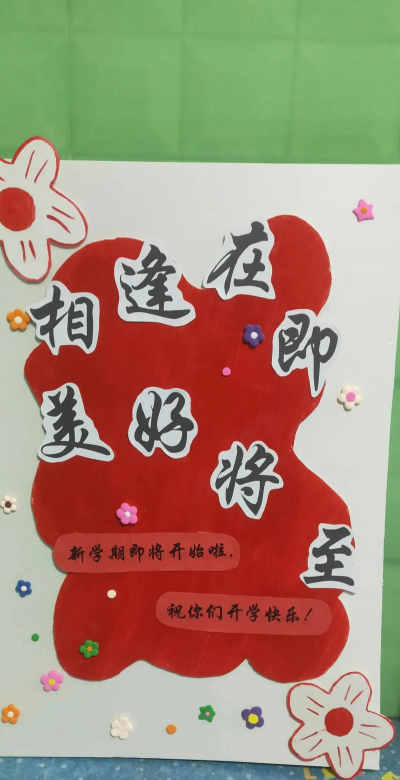 相逢在即
美好将至
新学期即将开始啦，
祝你们开学快乐！